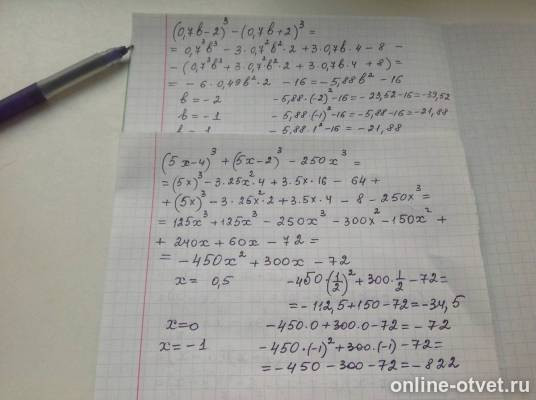 (0,7в-2)³-(0,7в+2)³=
= 0,7³в³ - 3·0,7²в²·2 + 3·0,7в·4 - 8 -
-(0,7³в³ + 3·0,7²в²·2 + 3·0,7в·4 + 8) =
= - 6·0,49в²·2 - 16 = - 5,88в² - 16
в = -2 - 5,88·(-2)²-16 = - 23,52-16 = -39,52
в = -1 - 5,88·(-1)²-16 = - 5,88-16 = -21,88
в = 1 - 5,88·1²-16 = - 21,88
(5x-4)³ + (5x-2)³ - 250x³ =
= (5x)³ - 3·25x²·4 + 3·5x·16 - 64 +
+ (5x)³ - 3·25x²·2 + 3·5x·4 - 8 - 250x³ =
= 125x³ + 125x³ - 250x³ - 300x² - 150x² +
+ 240x + 60x - 72 =
= - 450x² + 300x - 72
x = 0,5 -450·(1/2)² + 300·1/2 - 72 =
= -112,5 + 150 - 72 = -34,5
x = 0 -450·0 + 300·0 - 72 = - 72
x = -1 -450·(-1)² + 300·(-1) - 72 =
= - 450 - 300 - 72 = - 822
online-otvet.ru